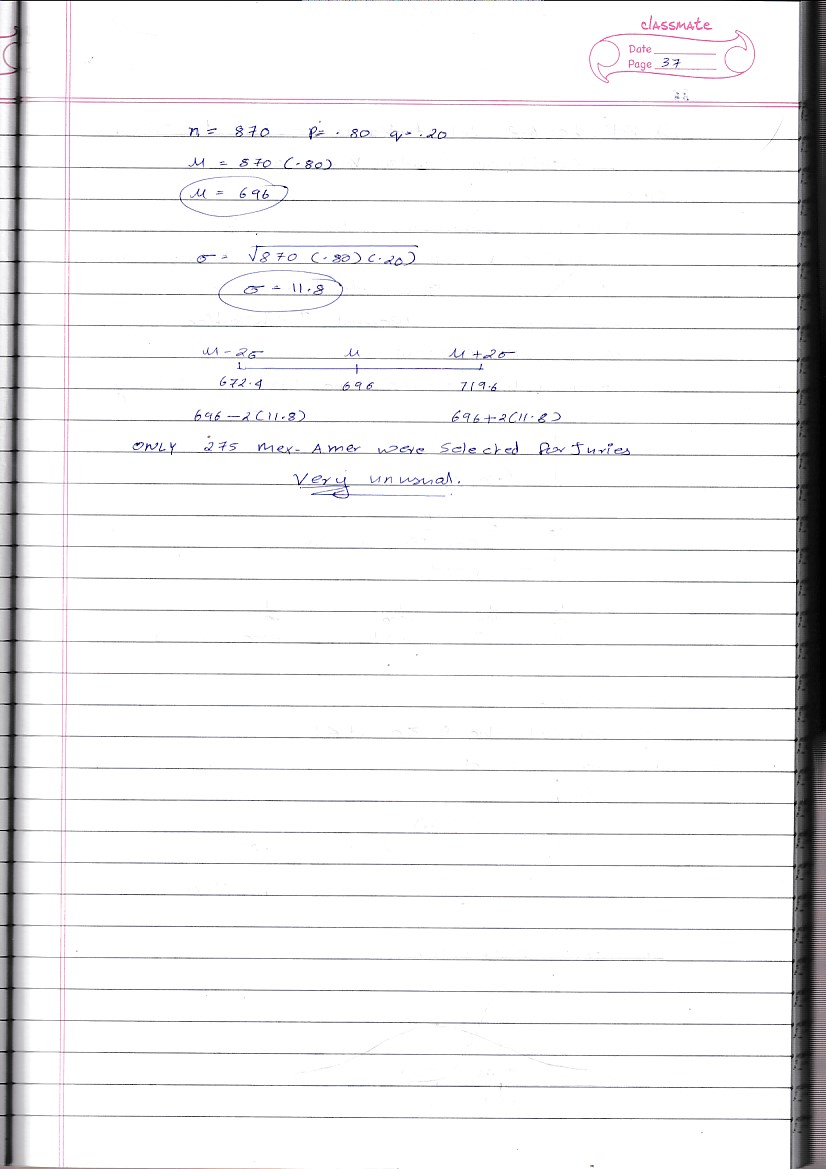 classmate
Date
Page 37
n = 870 p = .80 q = .20
μ = 870 (.80)
μ = 696
σ = √870 (.80) (.20)
σ = 11.8
μ - 2σ μ μ + 2σ
672.4 696 719.6
696 - 2(11.8) 696 + 2(11.8)
ONLY 275 Mex-Amer were Selected for Juries
Very unusual.